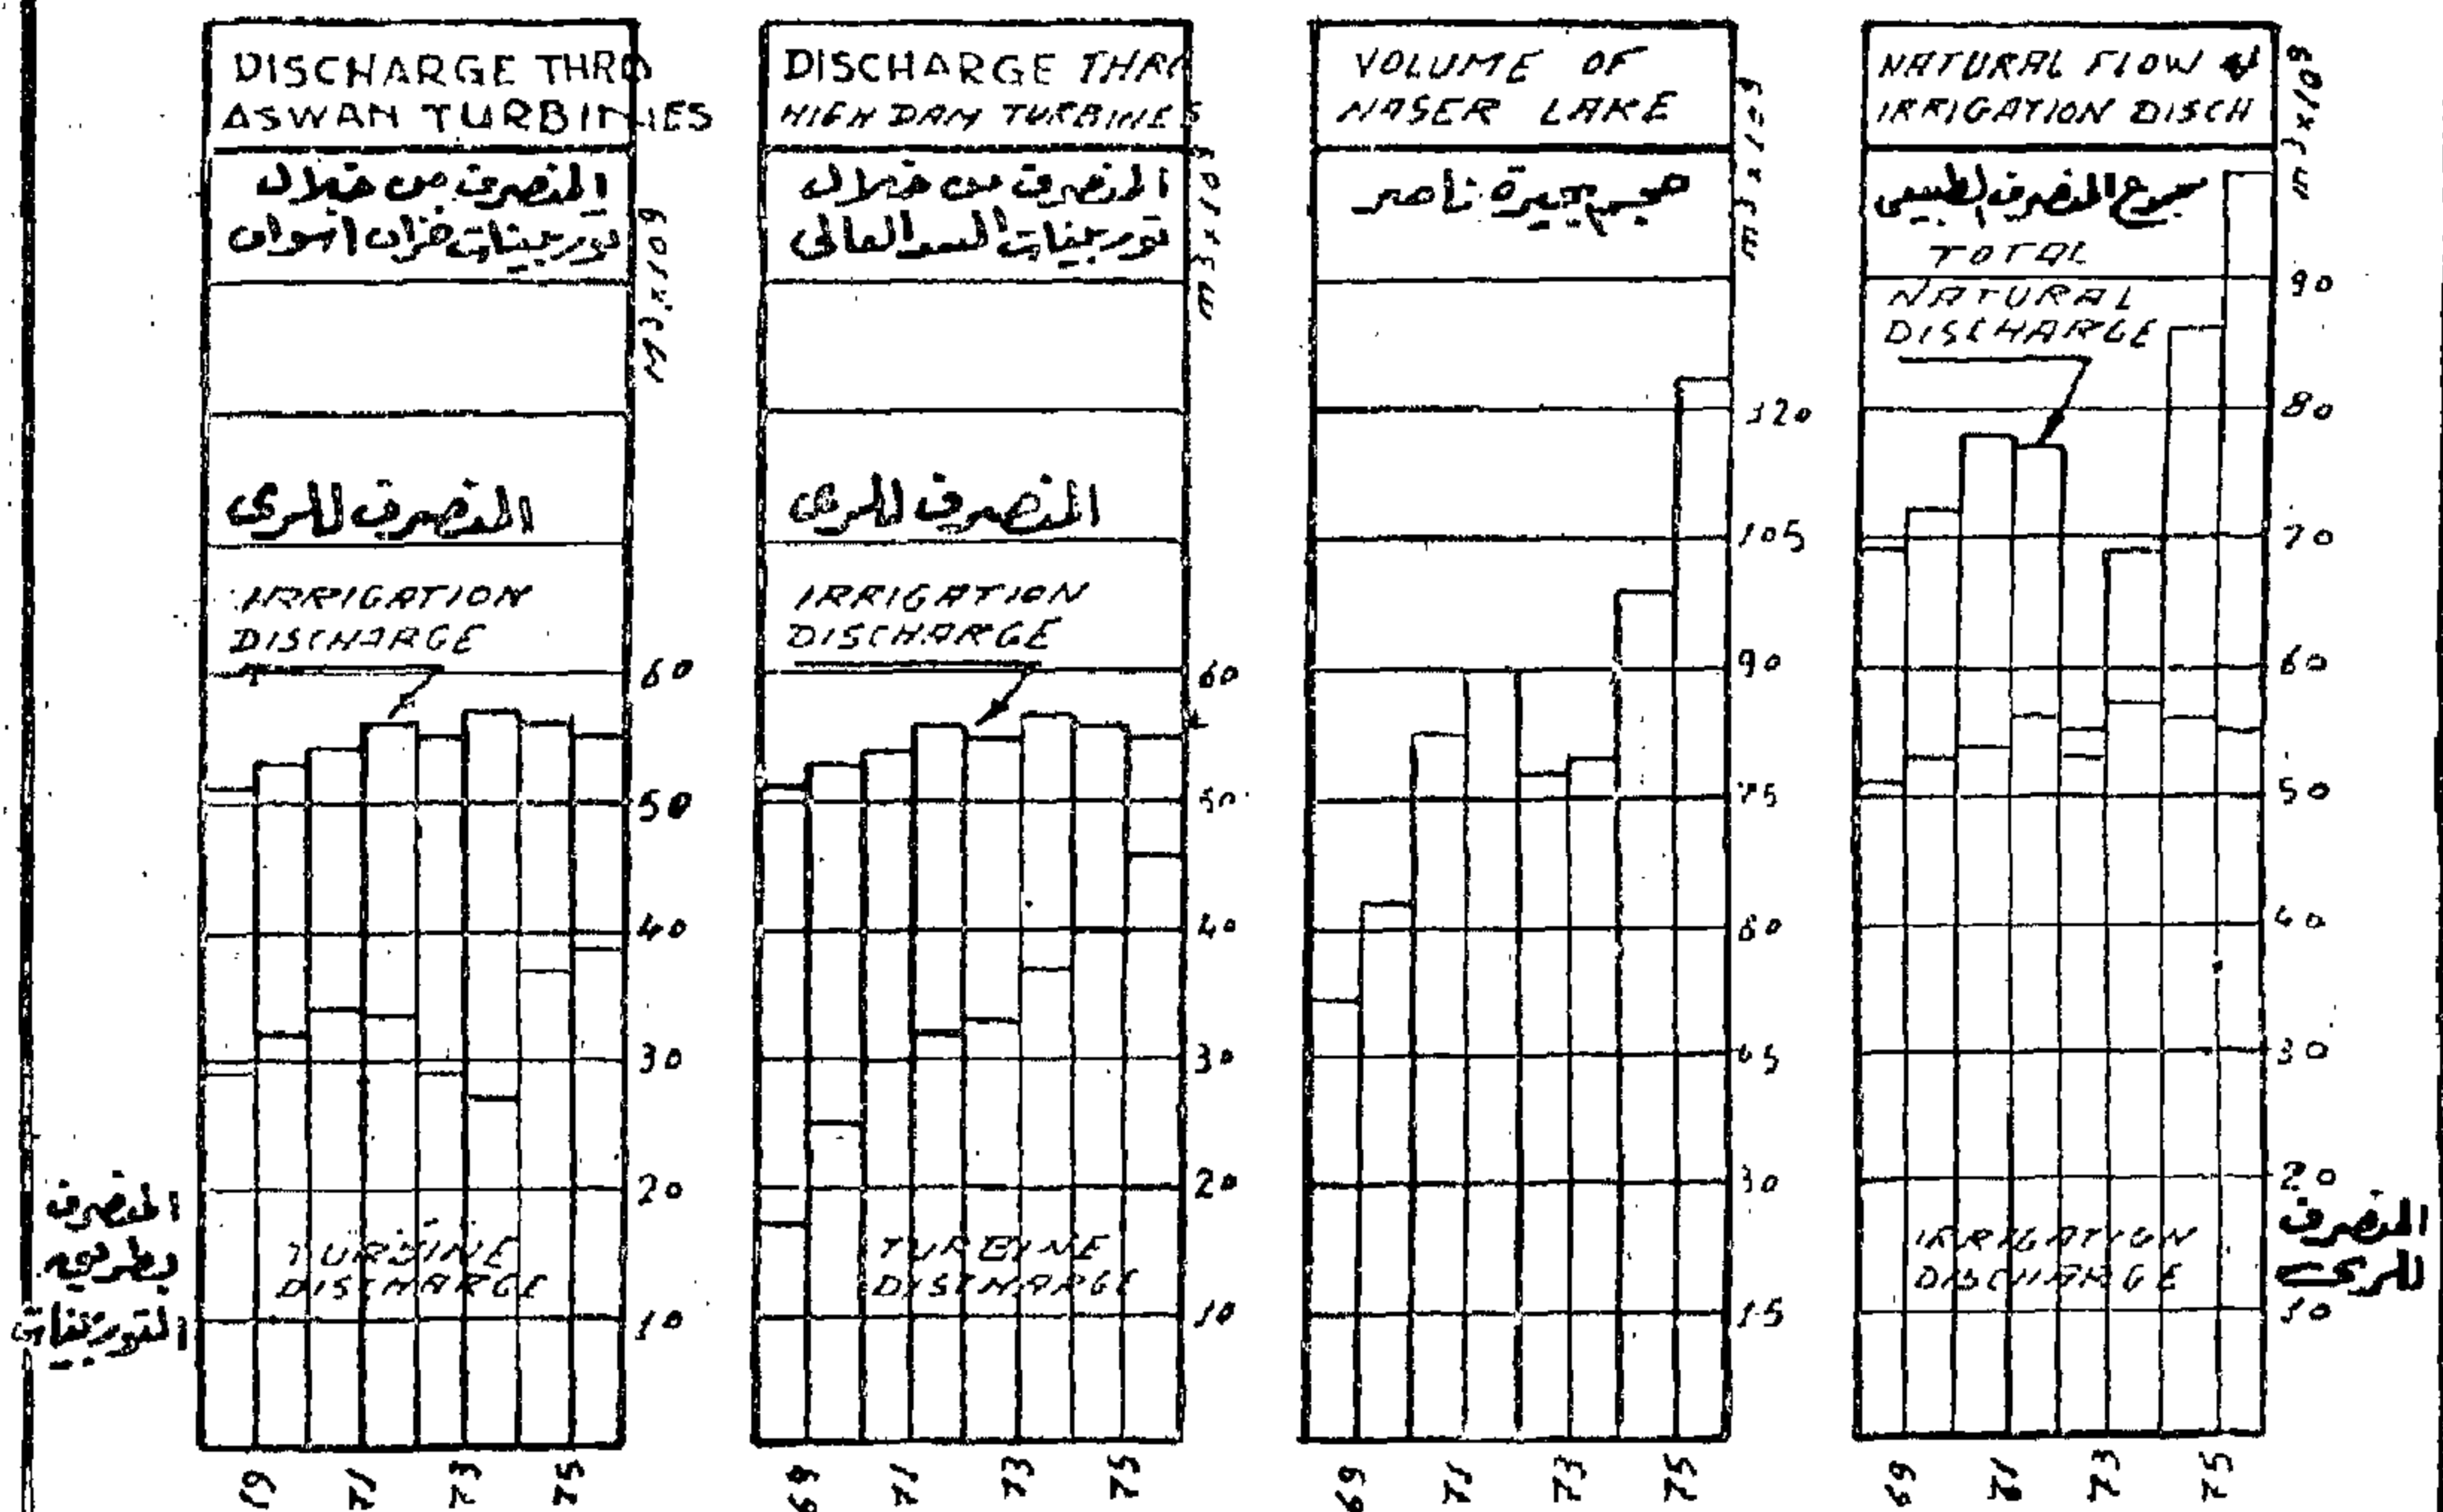 DISCHARGE THRO
ASWAN TURBINES
المنصرف من خلال
توربينات خزان اسوان
M3x109
المنصرف للرى
IRRIGATION
DISCHARGE
60
50
40
30
20
10
TURBINE
DISCHARGE
المنصرف
بطريق
التوربينات
69
71
73
75
DISCHARGE THRO
HIGH DAM TURBINES
المنصرف من خلال
توربينات السد العالى
m3x109
المنصرف للرى
IRRIGATION
DISCHARGE
60
50
40
30
20
10
TURBINE
DISCHARGE
69
71
73
75
VOLUME OF
NASER LAKE
حجم بحيرة ناصر
120
105
90
75
60
45
30
15
69
71
73
75
NATURAL FLOW &
IRRIGATION DISCH
m3x109
مجموع المنصرف الطبيعى
TOTAL
NATURAL
DISCHARGE
90
80
70
60
50
40
30
20
10
IRRIGATION
DISCHARGE
المنصرف
للرى
69
71
73
75